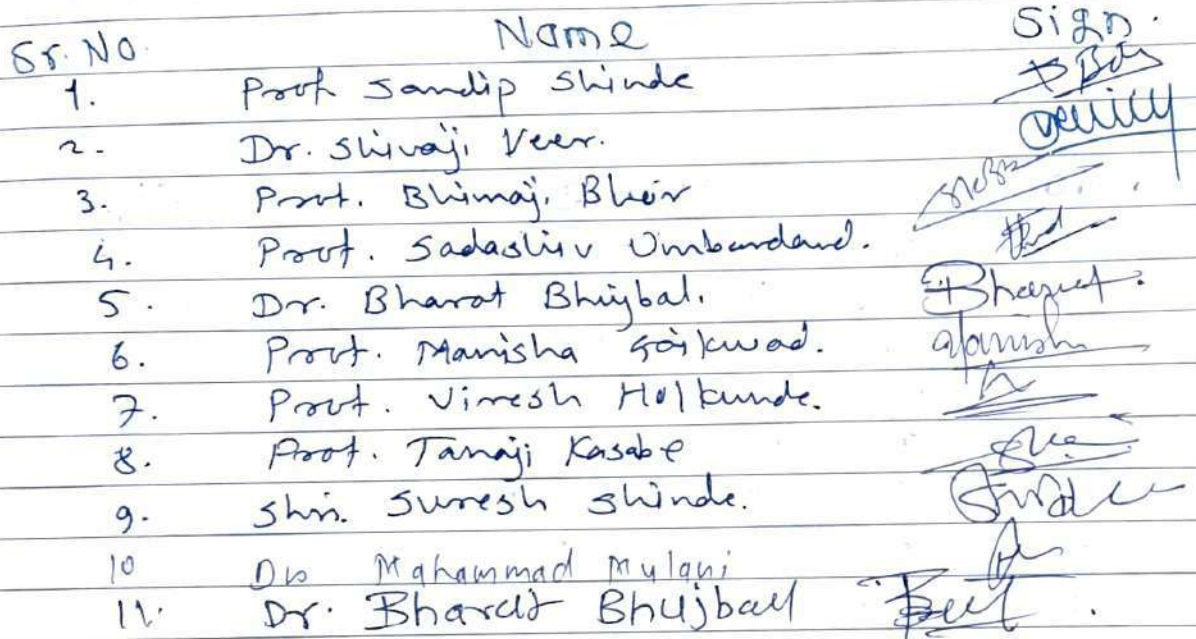 Sr. No. Name Sign.
1. Prof Sandip Shinde
2. Dr. Shivaji Veer.
3. Prof. Bhimaji Bhor
4. Prof. Sadashiv Umbardand.
5. Dr. Bharat Bhujbal. Bharat.
6. Prof. Manisha Gaikwad. Manisha
7. Prof. Viresh Holkunde.
8. Prof. Tanaji Kasabe
9. Shri. Suresh Shinde.
10 Dr Mahammad Mulani
11. Dr. Bharat Bhujball